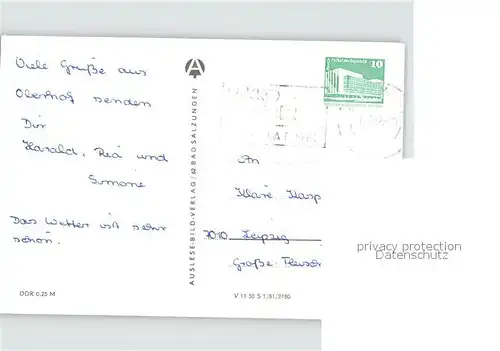 Viele Grüße aus
Oberhof senden
Dir
Harald, Rea und
Simone
Das Wetter ist sehr
schön.
DDR 0,25 M
AUSLESE-BILD-VERLAG / 62 BAD SALZUNGEN
A
10
An
Kläre Kasp
7010 Leipzig
Große Fleisch
V 11 50 S 1/81/2180
privacy protection
Datenschutz